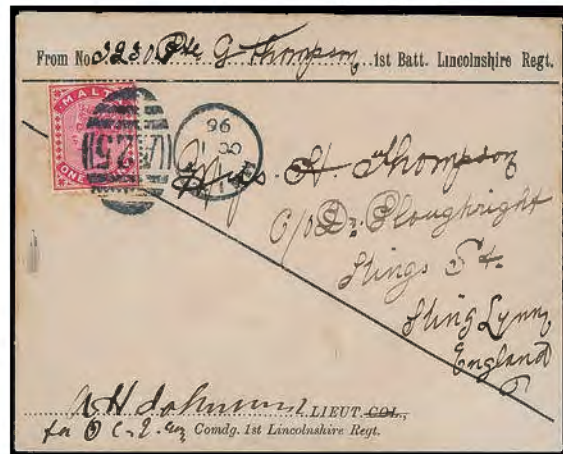 From No 3230 Pte G Thompson 1st Batt. Lincolnshire Regt.
MALTA
ONE PENNY
A25
96
Mrs. H. Thompson
C/o Dr. Ploughright
Kings St.
King Lynn
England
LIEUT. COL.,
for O C. Comdg. 1st Lincolnshire Regt.